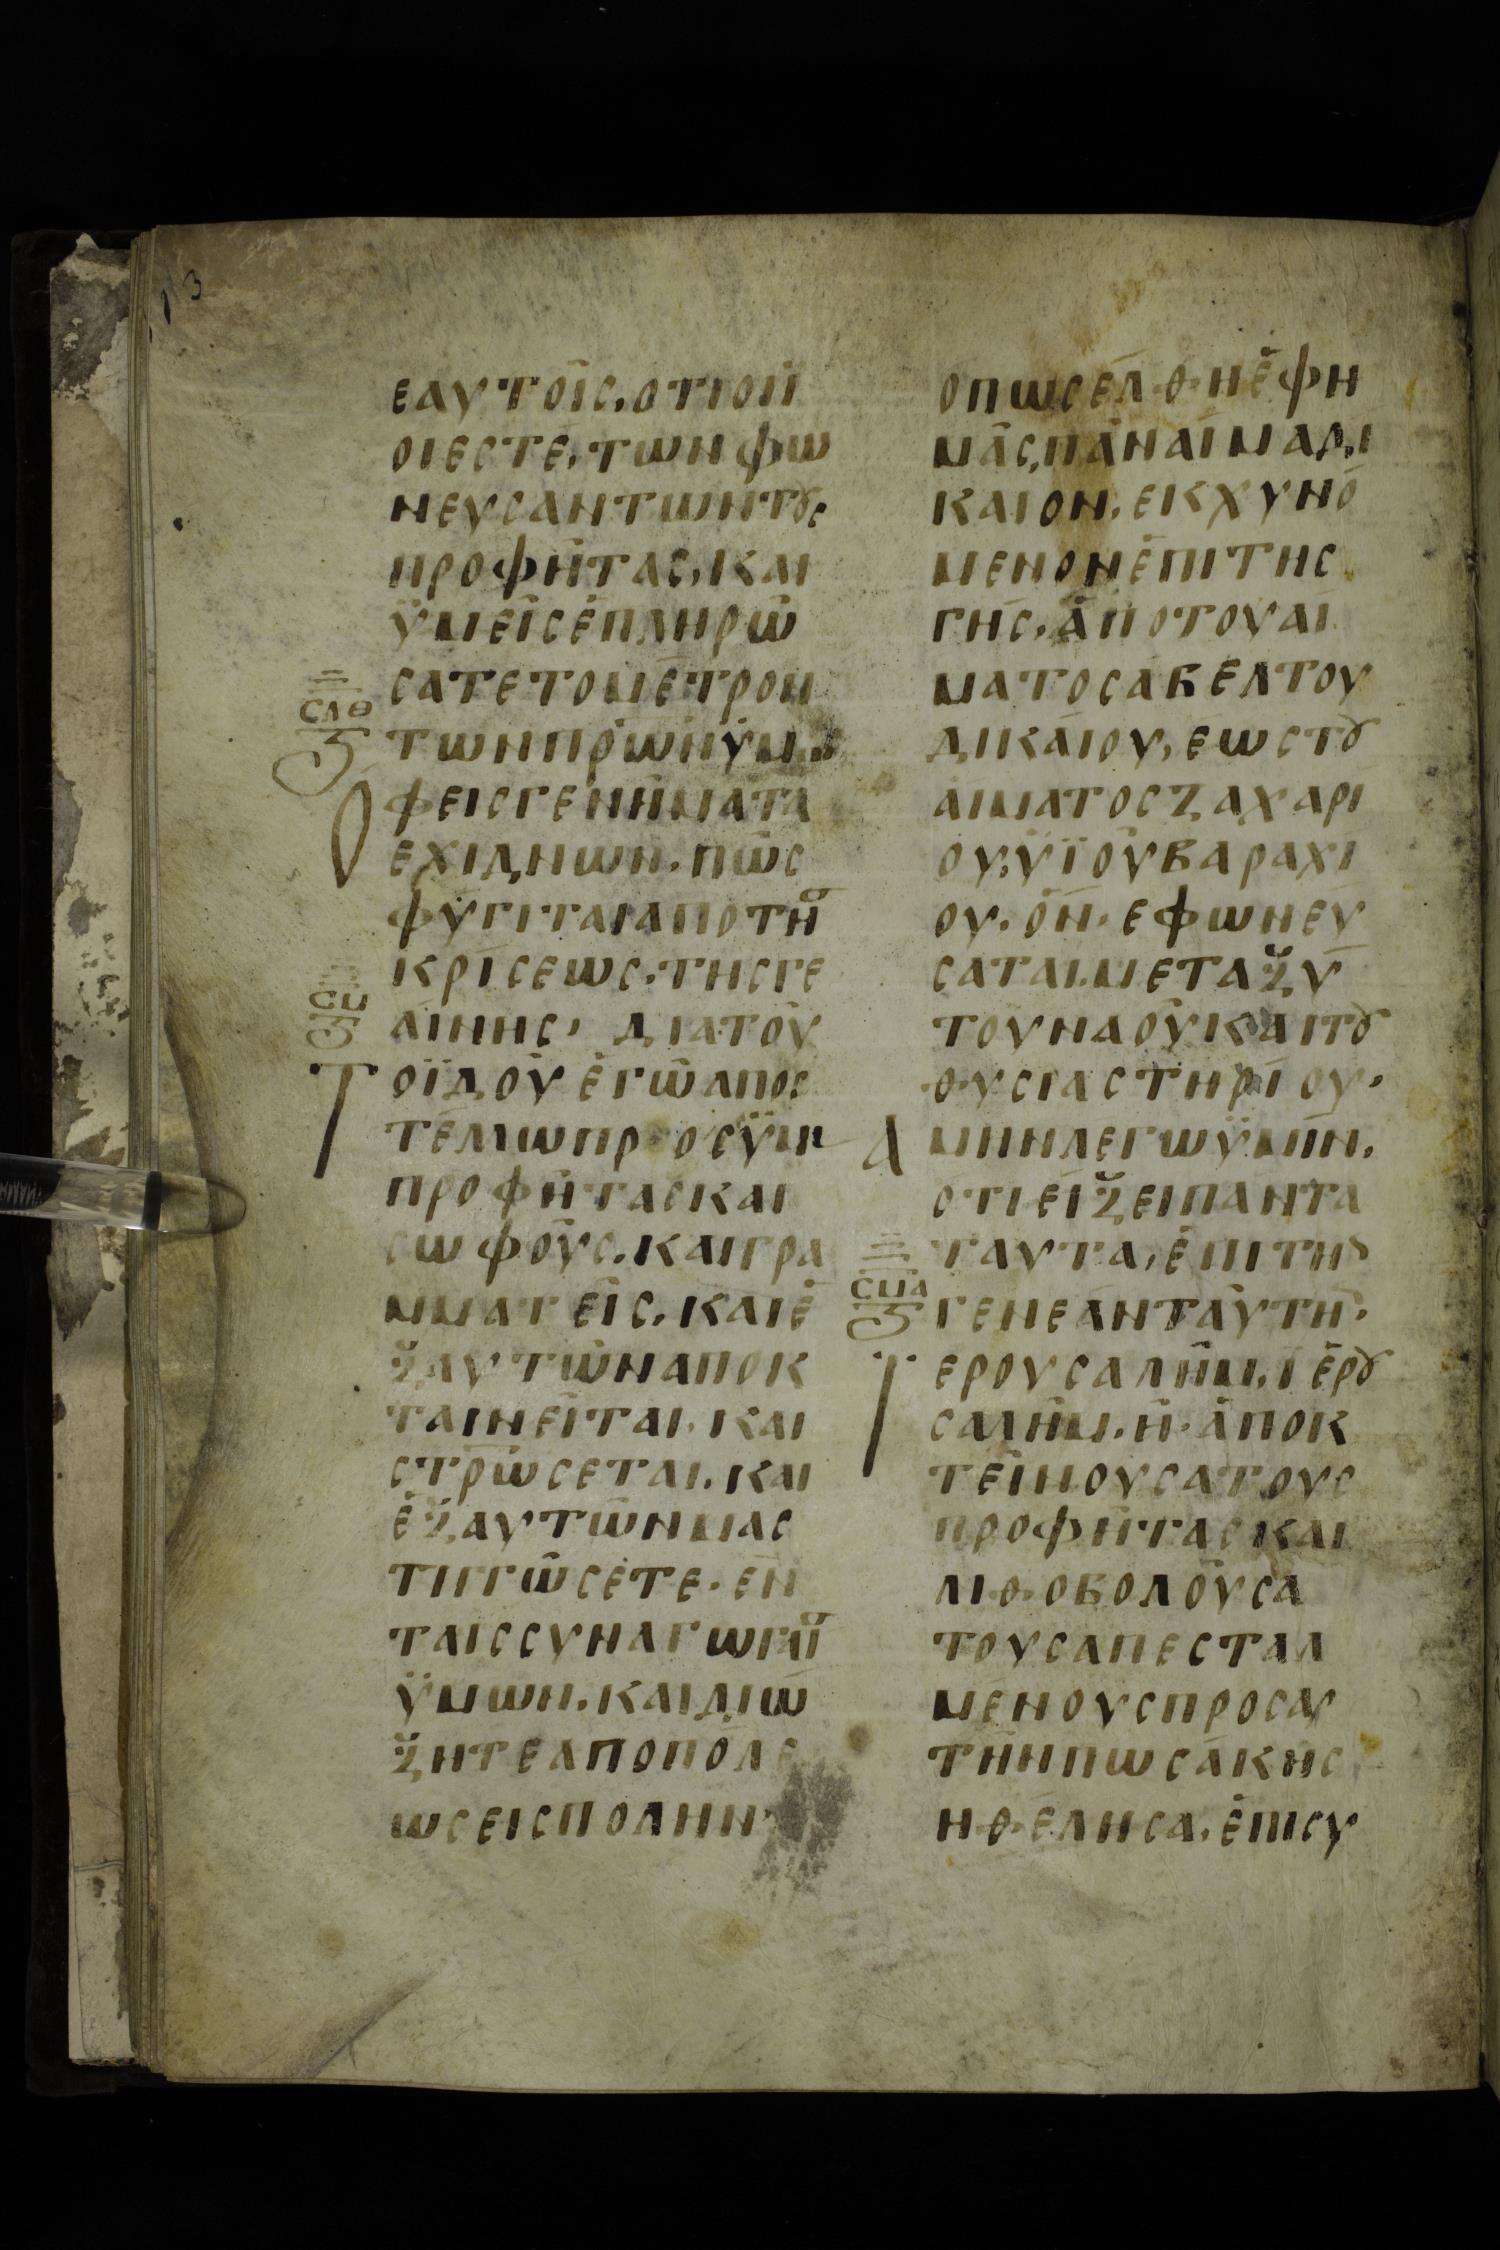 13
ΕΑΥΤΟΙC, ΟΤΙΟΙΫ
ΟΙΕCΤΕ, ΤΩΗΦΩ
ΝΕΥCΑΝΤΩΝΤȢC
ΠΡΟΦΗΤΑC, ΚΑΙ
ΫΜΕΙCΕΠΛΗΡΩ
CΑΤΕΤΟΜΕΤΡΟΝ
CΛΘ
ΤΩΝΠΡΩΝΫΜ
Ο ΦΕΙCΓΕΝΗΜΑΤΑ
ΕΧΙΔΝΩΝ. ΠΩC
ΦΥΓΙΤΑΙΑΠΟΤΗ
ΚΡΙCΕΩC. ΤΗCΓΕ
CΜ
ΑΙΝΗC, ΔΙΑΤΟΥ
Τ ΟΪΔΟΥΕΓΩΑΠΟC
ΤΕΛΛΩΠΡΟCΫΜ
ΠΡΟΦΗΤΑCΚΑΙ
CΩΦΟΥC. ΚΑΙΓΡΑ
ΜΜΑΤΕΙC. ΚΑΙΕ
ΞΑΥΤΩΝΑΠΟΚ
ΤΑΙΝΕΙΤΑΙ. ΚΑΙ
CΤΡΩCΕΤΑΙ. ΚΑΙ
ΕΞΑΥΤΩΝΜΑC
ΤΙΓΓΩCΕΤΕ. ΕΝ
ΤΑΙCCΥΝΑΓΩΓΑΙ
ΫΜΩΝ. ΚΑΙΔΙΩ
ΞΗΤΕΑΠΟΠΟΛΕ
ΩCΕΙCΠΟΛΗΝ
ΟΠΩCΕΛΘΗΕΦΗ
ΜΑC, ΠΑΝΑΙΜΑΔΙ
ΚΑΙΟΝ. ΕΚΧΥΝΟ
ΜΕΝΟΝΕΠΙΤΗC
ΓΗC, ΑΠΟΤΟΥΑΙ
ΜΑΤΟCΑΒΕΛΤΟΥ
ΔΙΚΑΙΟΥ, ΕΩCΤȢ
ΑΙΜΑΤΟCΖΑΧΑΡΙ
ΟΥ, ΫΪΟΥΒΑΡΑΧΙ
ΟΥ. ΟΝ. ΕΦΩΝΕΥ
CΑΤΑΙ. ΜΕΤΑΞΥ
ΤΟΥΝΑΟΥΚΑΙΤȢ
ΘΥCΙΑCΤΗΡΙΟΥ.
Α ΜΗΝΛΕΓΩΫΜΙΝ.
ΟΤΙΕΙΞΕΙΠΑΝΤΑ
ΤΑΥΤΑ, ΕΠΙΤΗΝ
CΜΑ
ΓΕΝΕΑΝΤΑΥΤΗ.
Ϊ ΕΡΟΥCΑΛΗΜ. ΙΕΡȢ
CΑΛΗΜ. Η. ΑΠΟΚ
ΤΕΙΝΟΥCΑΤΟΥC
ΠΡΟΦΗΤΑCΚΑΙ
ΛΙΘΟΒΟΛΟΥCΑ
ΤΟΥCΑΠΕCΤΑΛ
ΜΕΝΟΥCΠΡΟCΑΥ
ΤΗΝΠΩCΑΚΗC
ΗΘΕΛΗCΑ. ΕΠΙCΥ